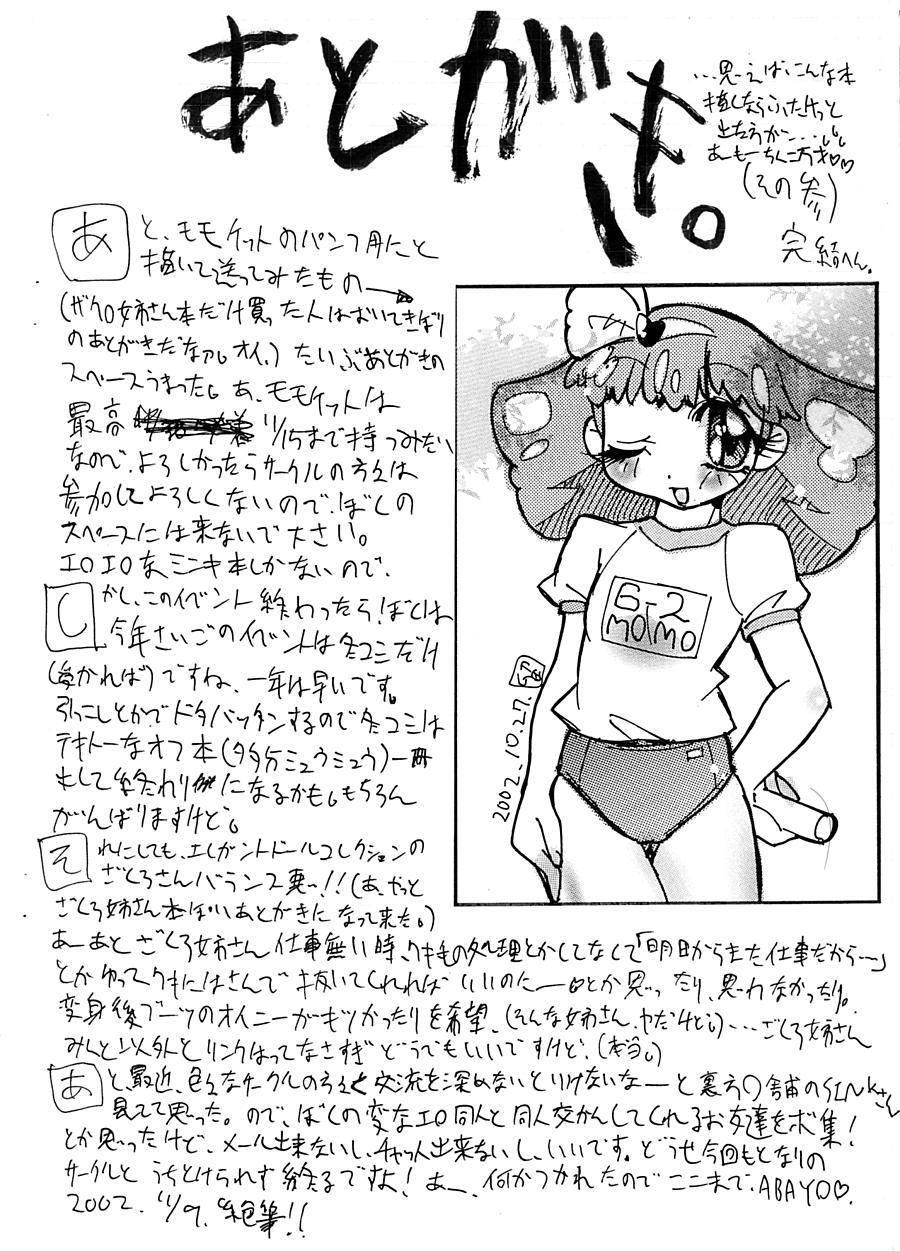 あとがき。
…思えば、こんな本
(その参)
完結へん。
あと、モモケットのパンフ用にと
描いて送ってみたもの→
(ザクロ姉さん本だけ買った人はおいてきぼり
のあとがきだなァ。オイ。) だいぶあとがきの
スペースうまった。あ、モモケットは
最高 11/15まで持つみたい
なので、よろしかったらサークルの方々は
参加してよろしくないので、ぼくの
スペースには来ないで下さい。
エロエロなミンキ本しかないので、
しかし、このイベント終わったら、ぼくは
今年さいごのイベントは冬コミだけ
(受かれば)ですね、一年は早いです。
引っこしとかでドタバッタンするので冬コミは
テキトーなオフ本(多分ミュウミュウ)一冊
出して終わりになるかも。もちろん
がんばりますけど。
それにしても、エレガントドールコレクションの
ざくろさんバランス悪っ!!(あ、やっと
ざくろ姉さん本ぽいあとがきになって来た。)
あーあとざくろ姉さん仕事無い時、ワキ毛の処理とかしてなくて「明日からまた仕事だから…」
とかゆってワキにはさんで抜いてくれればいいのにーとか思ったり、思わなかったり。
変身後ブーツのオイニーがキツかったりを希望、(そんな姉さん、ヤだけど。)…ざくろ姉さん
みんと以外とリンクはってなさすぎどうでもいいですけど、(本当。)
あと、最近、色々なサークルの方々と交流を深めないといけないなーと裏方〇舗のSINKさん
見てて思った。ので、ぼくの変なエロ同人と同人交かんしてくれるお友達をボ集!
とか思ったけど、メール出来ないし、チャット出来ないし、いいです。どうせ今回もとなりの
サークルとうちとけられず終るですよ!あー、何かつかれたのでここまで、ABAYO♡.
2002. 11/9. 絶筆!!
6-2
MOMO
2002.10.27.